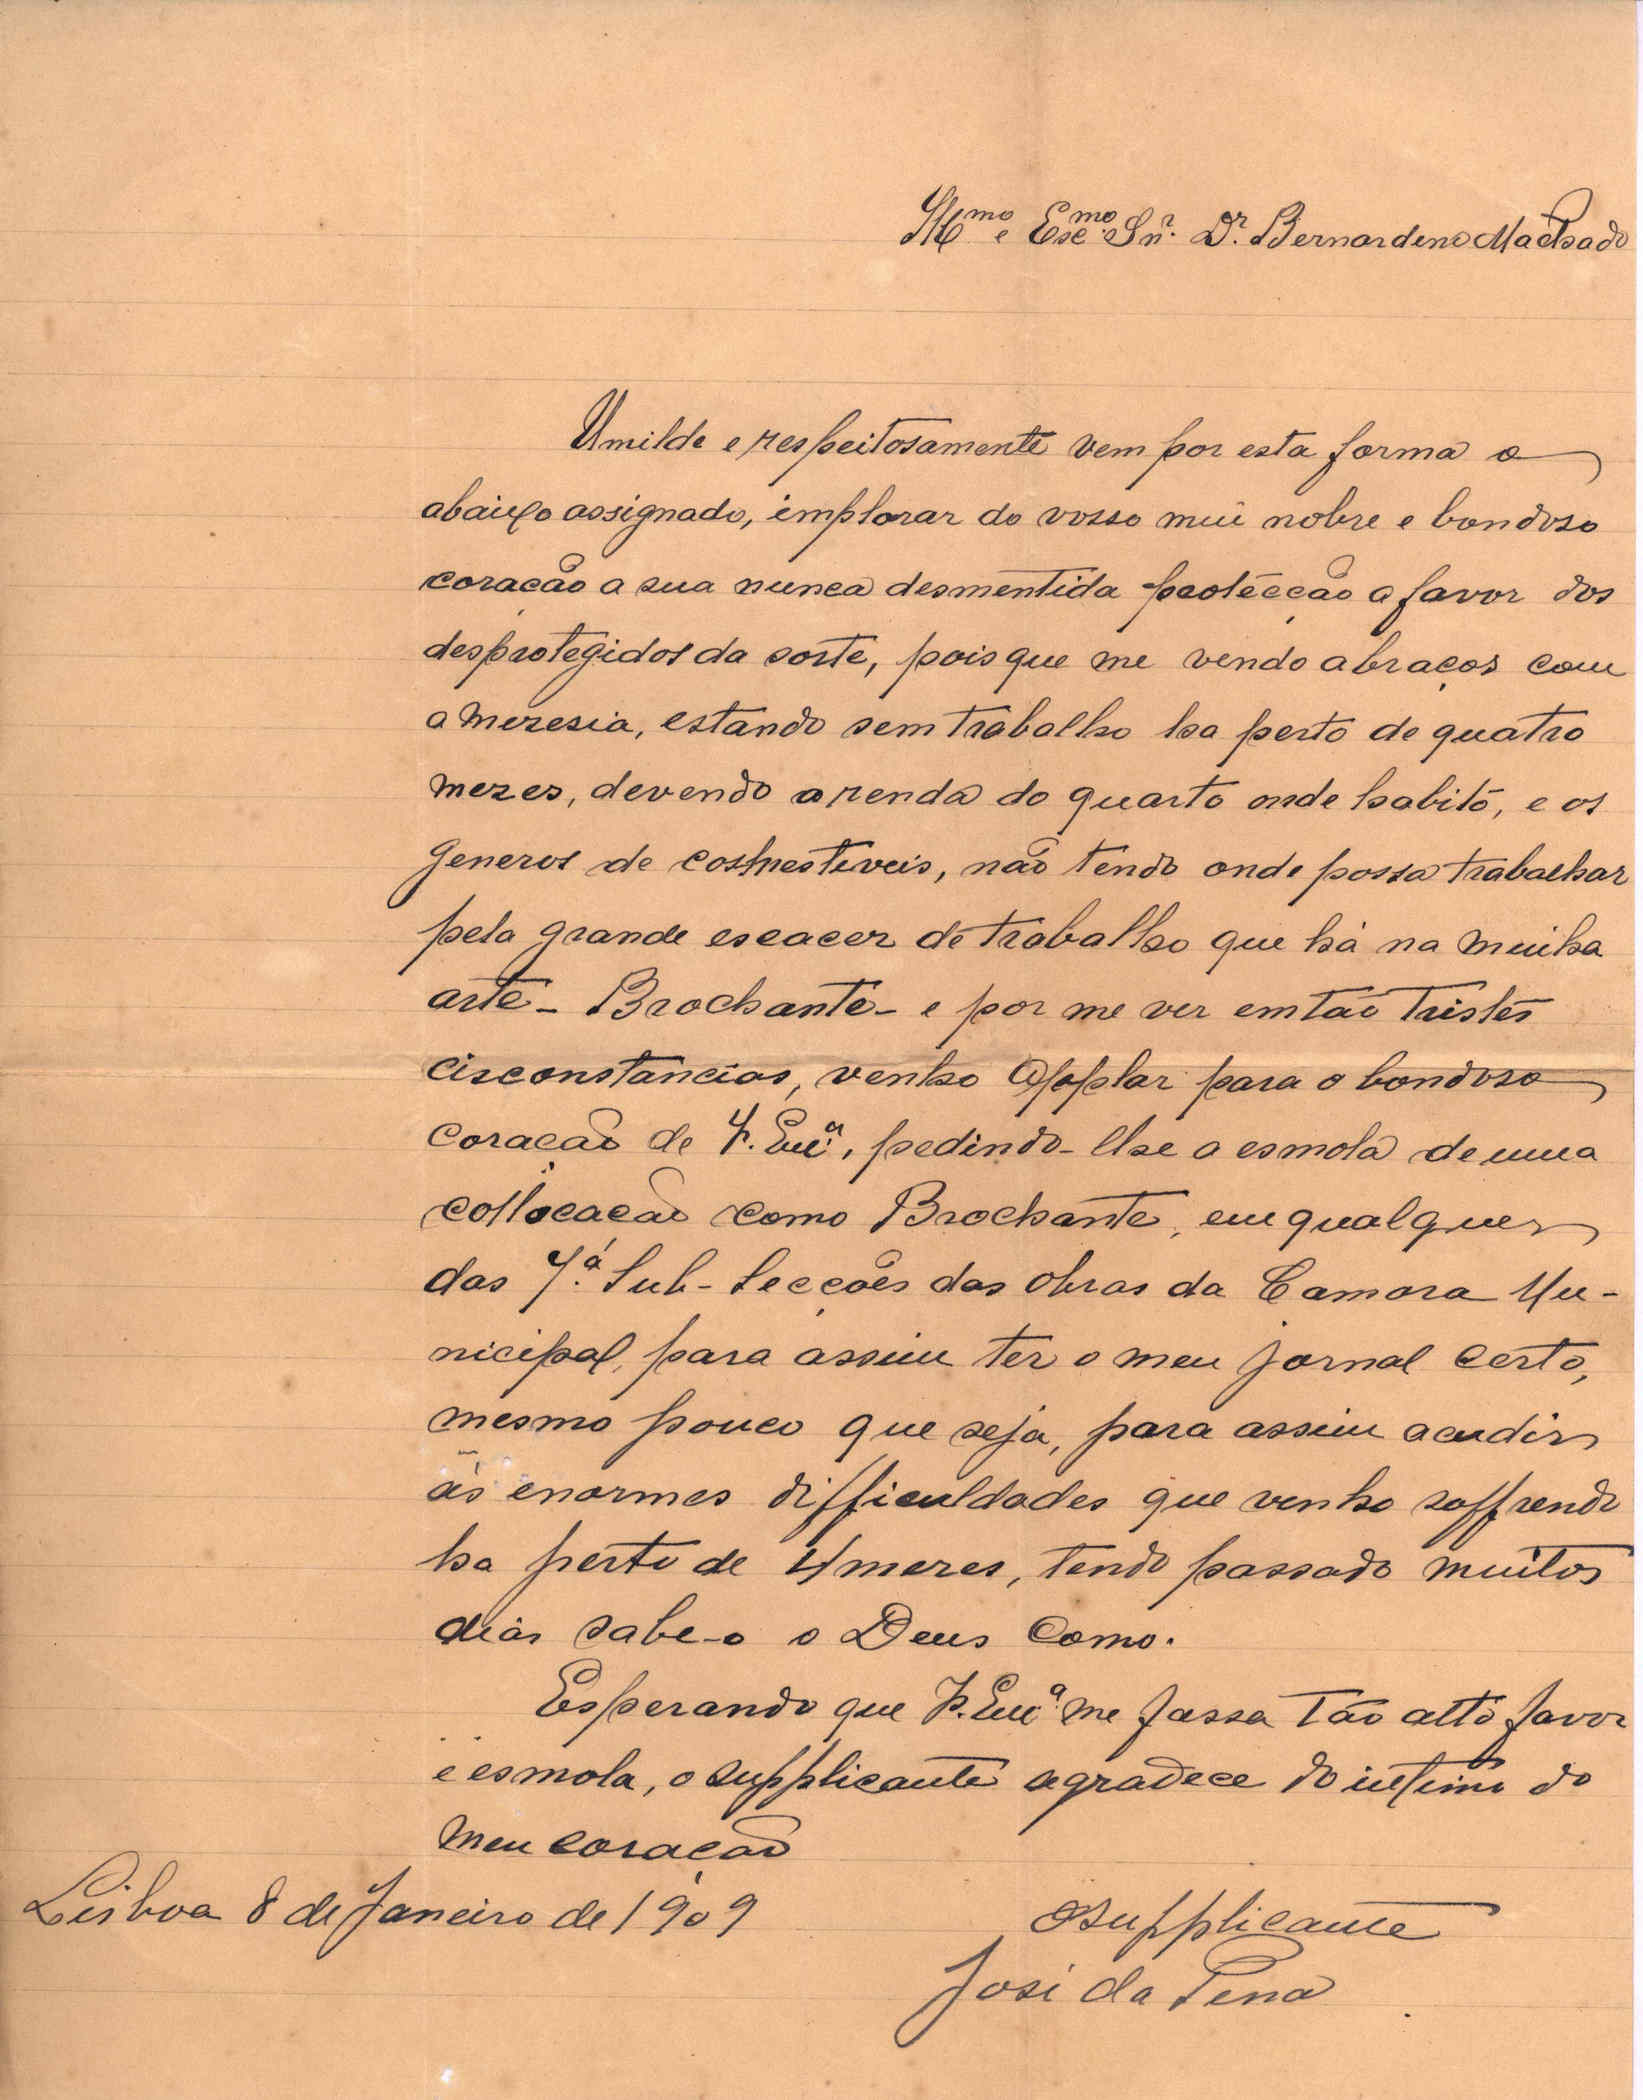 Illmo e Excmo Snr. Dr. Bernardino Machado
Umilde e respeitosamente vem por esta forma o
abaixo assignado, implorar do vosso mui nobre e bondoso
coração a sua nunca desmentida protecção a favor dos
desprotegidos da sorte, pois que me vendo abraços com
a meresia, estando sem trabalho ha perto de quatro
mezes, devendo a renda do quarto onde habito, e os
generos de comestiveis, não tendo onde possa trabalhar
pela grande escacez de trabalho que há na minha
arte - Brochante - e por me ver em tão tristes
circonstancias, venho applar para o bondoso
coração de V. Excª, pedindo-lhe a esmola de uma
collocação como Brochante, em qualquer
das 7.ª Sub-Secções das obras da Camara Mu-
nicipal, para assim ter o meu jornal certo,
mesmo pouco que seja, para assim acudir
ás enormes difficuldades que venho soffrendo
ha perto de 4 mezes, tendo passado muitos
dias sabe-o o Deus como.
Esperando que V. Excª. me fassa tão alto favor
e esmola, o supplicante agradece do intimo do
meu coração
Lisboa 8 de Janeiro de 1909
O supplicante
José da Pena